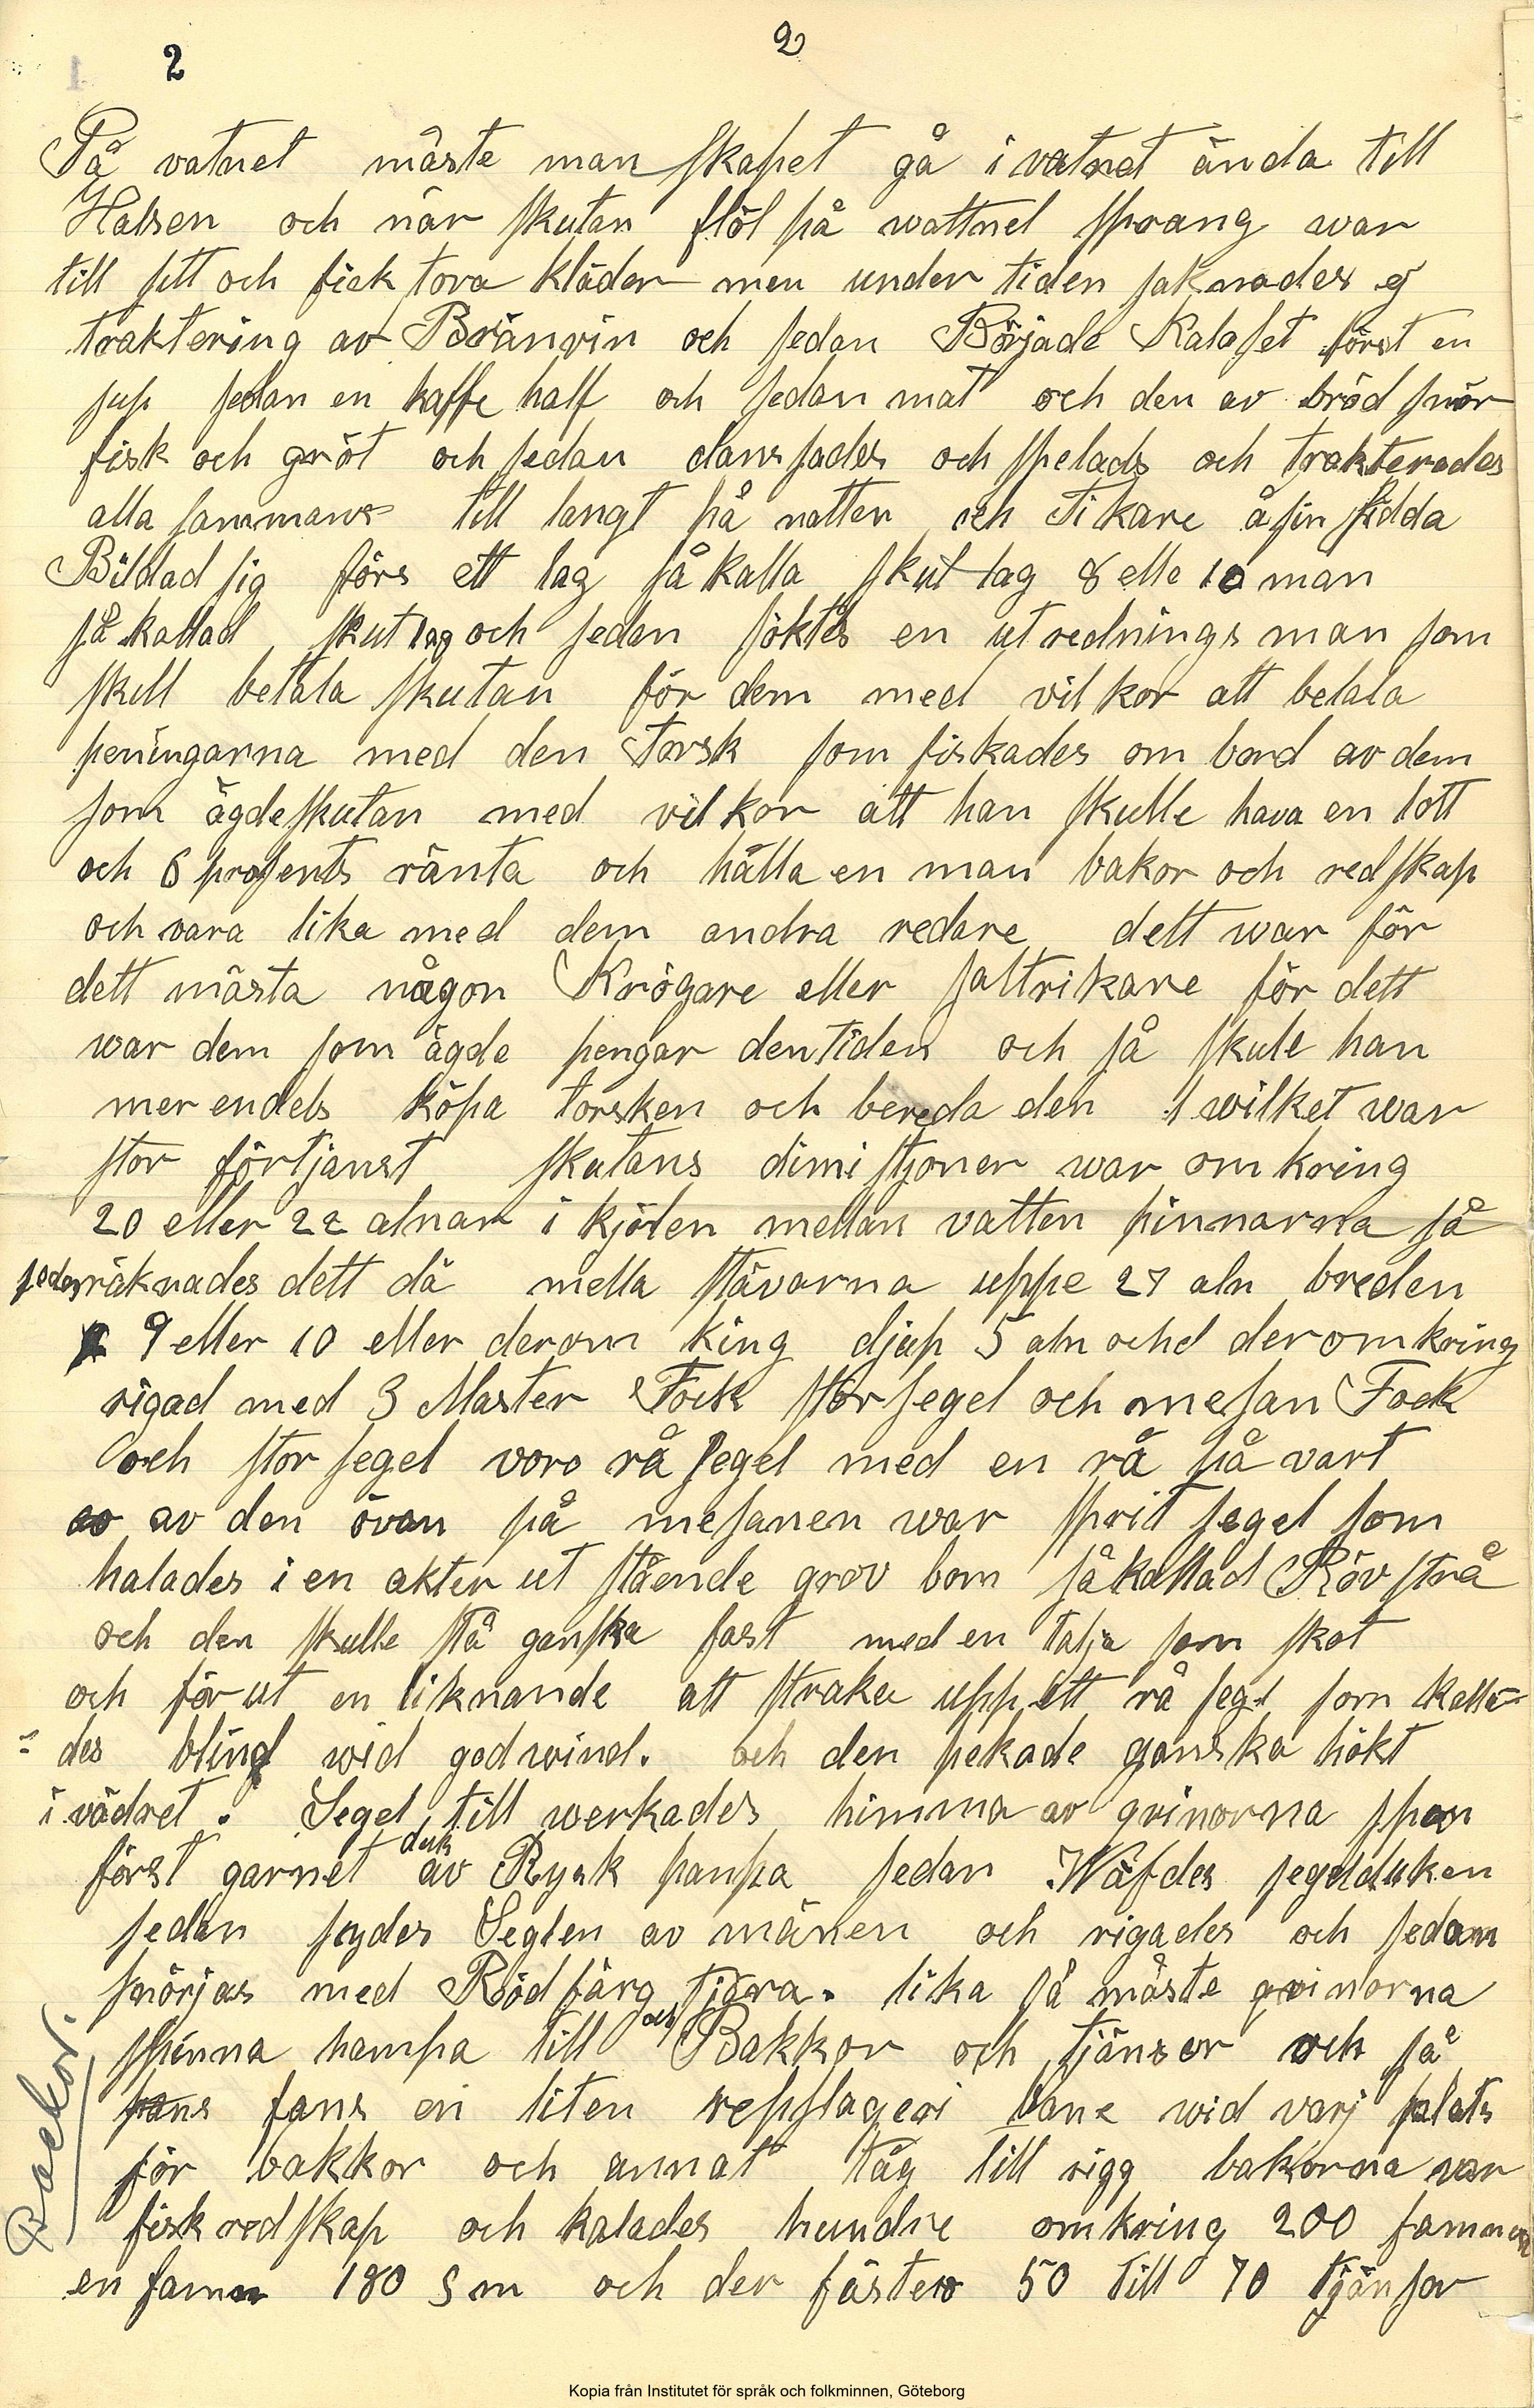 2
2
På vatnet måste manskapet gå i vatnet ända till
Halsen och när skutan flöl på wattnet sprang war
till sitt och fick tora kläder men under tiden saknades ej
traktering av Bränvin och sedan Började Kalaset först en
sup sedan en kaffe half och sedan mat och den av bröd smör
fisk och gröt och sedan dansades och spelads och trakterades
alla sammans till langt på natten och Fikare å sin sidda
Bildad sig förs ett lag så kalla skut lag 8 elle 10 man
så kallad skutlag och sedan söktes en utrednings man som
skull betala skutan för dem med vilkor att betala
peningarna med den Torsk som fiskades om bord av dem
som ägde skutan med vilkor att han skulle hava en lott
och 6 prosents ränta och hålla en man bakor och redskap
och vara lika med dem andra redare dett war för
dett mästa någon Krögare eller saltrikare för dett
war dem som ägde pengar den tiden och så skule han
mer endels köpa torsken och bereda den wilket war
stor förtjanst skutans dimistjoner war omkring
20 eller 22 alnar i kjölen mellan vatten pinnarna så
sedan räknades dett då mella stävarna uppe 27 aln breden
9 eller 10 eller derom king djup 5 aln ochd deromkring
rigad med 3 Master Fock stor segel och mesan Fock
och stor segel voro rå segel med en rå på vart
av av den övan på mesanen war sprit segel som
halades i en akter ut stående grov bom så kallad Rövstrå
och den skulle stå ganska fast med en talja som skot
och för ut en liknande att straka upp ett rå segl som kalla-
- des blind wid god wind. och den pekade ganska hökt
i vädret. Segel till werkades himma av qvinorna span
först garnet duk av Rysk hanpa sedan Wäfdes segelduken
sedan sydes Seglen av mänen och rigades och sedan
smörjas med Rödfärg tjära. lika så måste qvinorna
spinna hampa till och Bakkor och tjänsor och så
fans fans en liten repslageri bane wid varj plats
för bakkor och annat tåg till rigg bakorna var
fiskredskap och kalades hundre omkring 200 famnar
en famn 180 Sm och der fästes 50 till 70 tjänsor
Backor.
Kopia från Institutet för språk och folkminnen, Göteborg